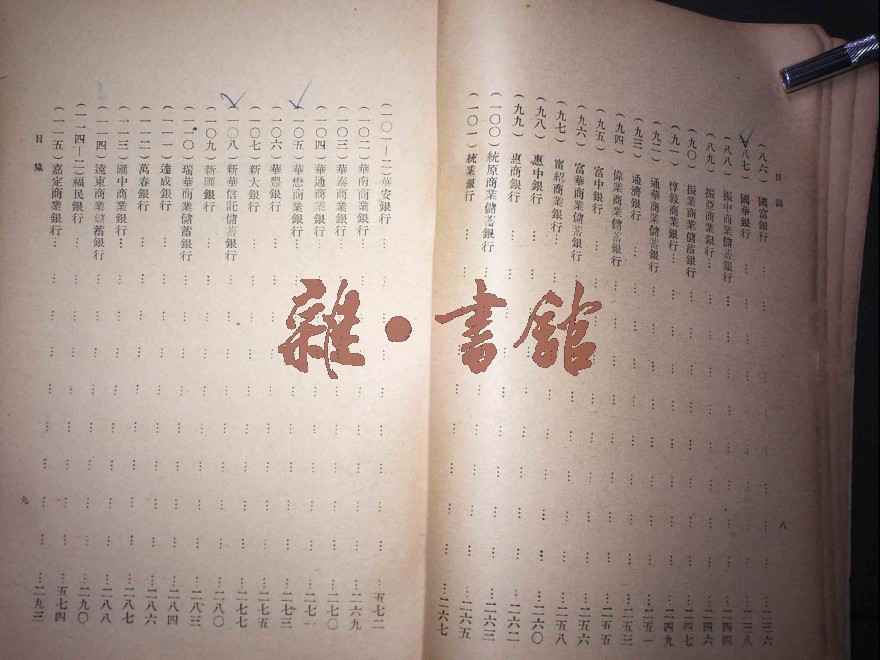 目錄
八
(八六)國富銀行……二三六
(八七)國華銀行……二三八
(八八)振中商業儲蓄銀行……二四四
(八九)振亞商業銀行……二四六
(九〇)振業商業儲蓄銀行……二四七
(九一)惇敍商業銀行……二四九
(九二)通華商業儲蓄銀行……二五一
(九三)通濟銀行……二五三
(九四)偉業商業儲蓄銀行……二五五
(九五)富中銀行……二五五
(九六)富華商業儲蓄銀行……二五八
(九七)甯紹商業銀行……二六〇
(九八)惠中銀行……二六二
(九九)惠商銀行……二六三
(一〇〇)統原商業儲蓄銀行……二六五
(一〇一)統業銀行……二六七
(一〇一—二)華安銀行……五七二
(一〇二)華南商業銀行……二六九
(一〇三)華泰商業銀行……二七〇
(一〇四)華通商業銀行……二七一
(一〇五)華懋商業銀行……二七三
(一〇六)華豐銀行……二七五
(一〇七)新大銀行……二七七
(一〇八)新華信託儲蓄銀行……二八〇
(一〇九)新匯銀行……二八三
(一一〇)瑞華商業儲蓄銀行……二八四
(一一一)達成銀行……二八六
(一一二)萬春銀行……二八七
(一一三)匯中商業銀行……二八八
(一一四)遠東商業儲蓄銀行……二九〇
(一一四—二)福民銀行……五七四
(一一五)嘉定商業銀行……二九三
目錄
九
雜·書館